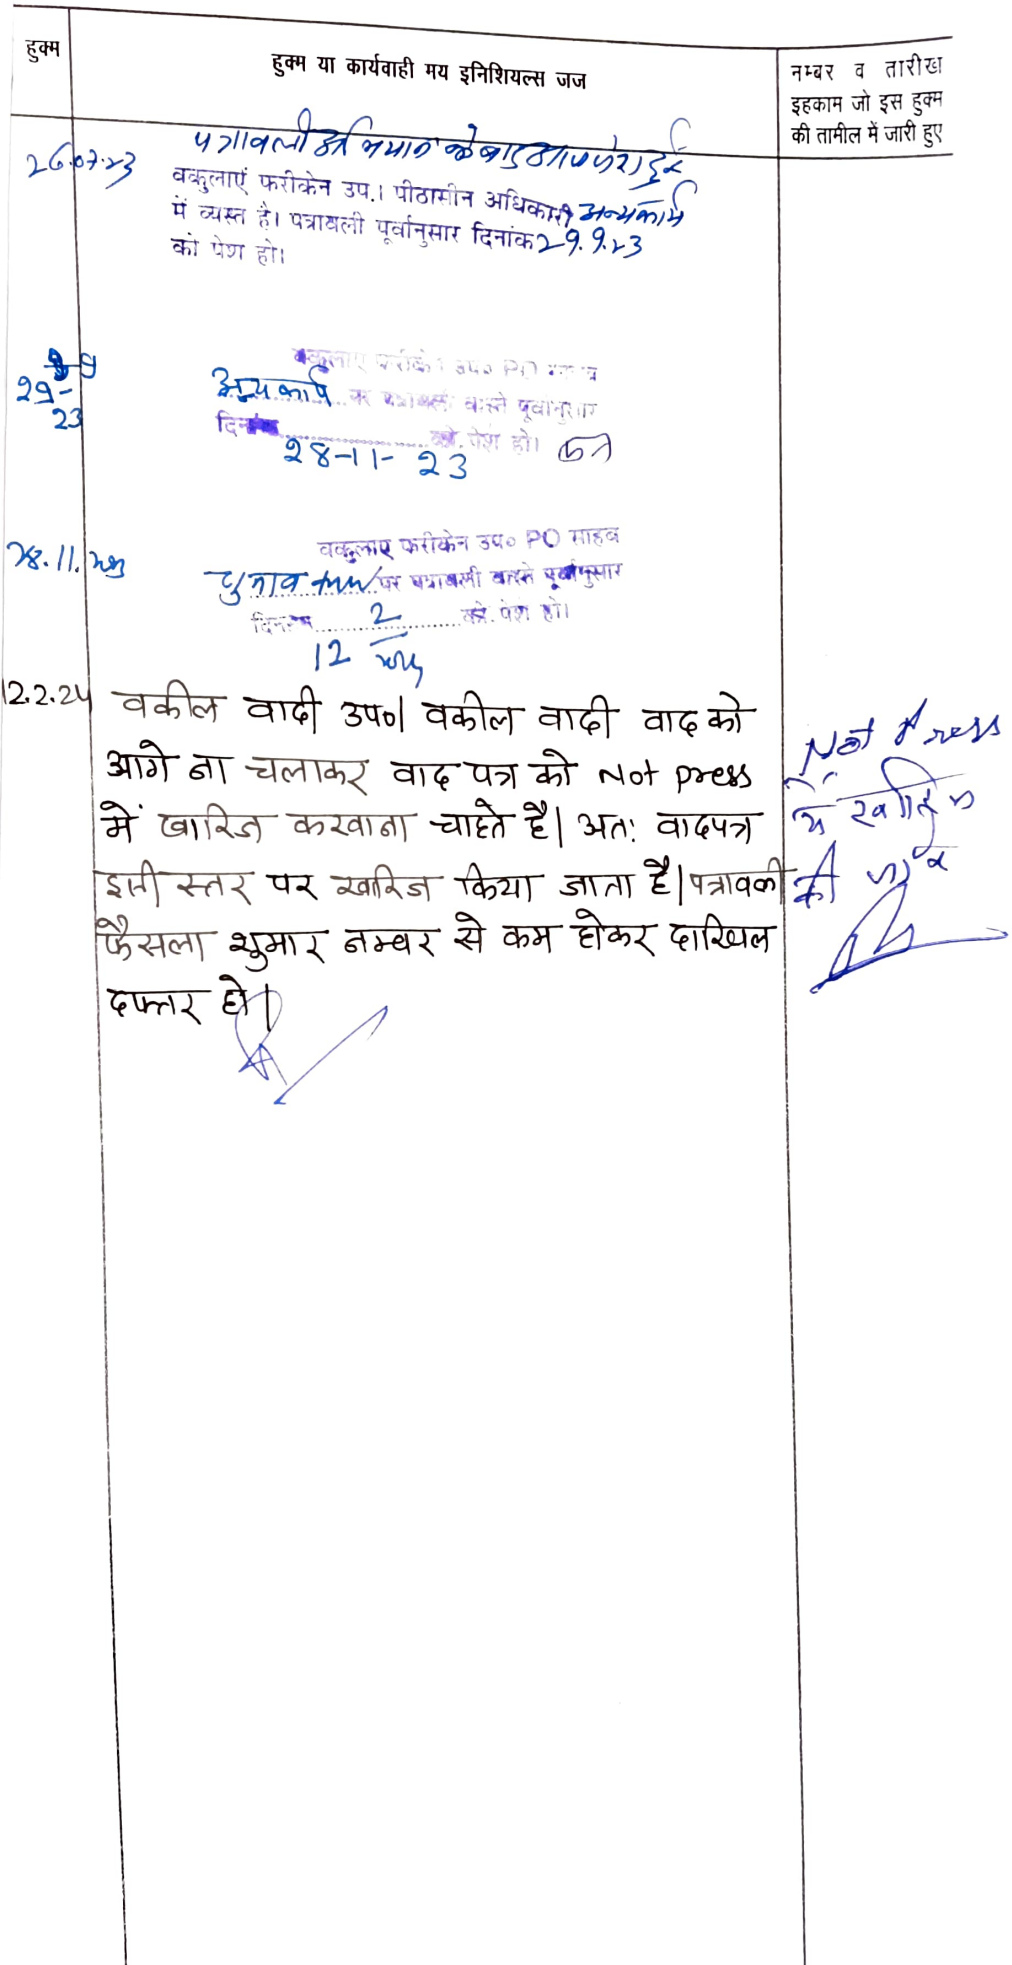 हुक्म
हुक्म या कार्यवाही मय इनिशियल्स जज
नम्बर व तारीख
इहकाम जो इस हुक्म
की तामील में जारी हुए
26.07.23
पत्रावली के बाद आज पेश हुई
वकुलाएं फरीकेन उप.। पीठासीन अधिकारी अन्य कार्य
में व्यस्त है। पत्रावली पूर्वानुसार दिनांक 29.9.23
को पेश हो।
29-9
23
वकुलाए फरीकेन उप० PO साहब
अन्य कार्य पर पत्रावली वास्ते पूर्वानुसार
दिनांक को पेश हो।
28-11-23
28.11.23
वकुलाए फरीकेन उप० PO साहब
चुनाव पर पत्रावली वास्ते पूर्वानुसार
दिनांक 2 को पेश हो।
12
12.2.24 वकील वादी उप०। वकील वादी वाद को
आगे ना चलाकर वाद पत्र को Not press
में खारिज करवाना चाहते है। अतः वादपत्र
इसी स्तर पर खारिज किया जाता है। पत्रावली
फैसला शुमार नम्बर से कम होकर दाखिल
दफ्तर हो।
Not Press
में खारिज
की